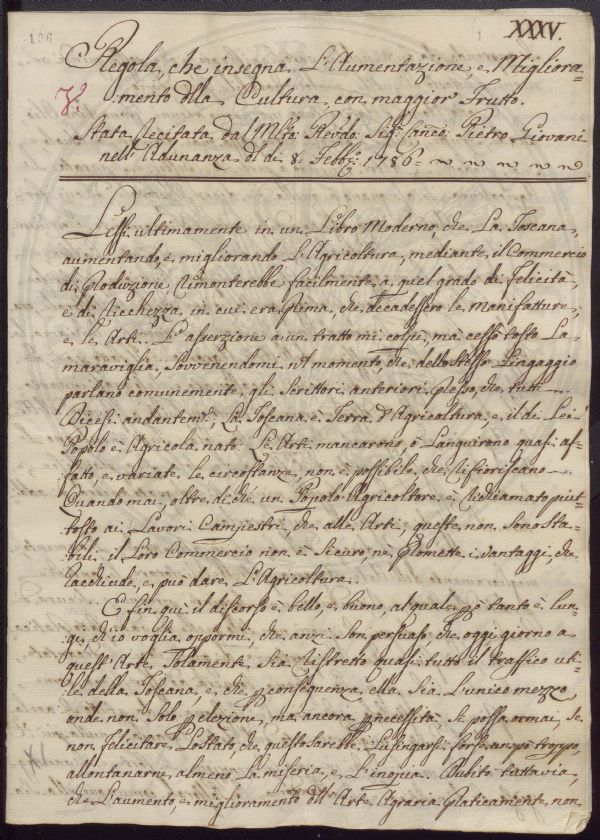 106
1
XXXV.
Regola, che insegna L'Aumentazione, e Migliora=
mento dlla Cultura, con maggior Frutto.
Stata Recitata dal Mlto: Revdo: Sigr: Canco: Pietro Giovani
nell'Adunanza dl dì 8. Febbr: 1786
Lessi ultimamente in un Libro Moderno, che La Toscana,
aumentando, e migliorando L'Agricoltura, mediante il Commercio
di Produzione rimonterebbe facilmente a quel grado di felicità,
e di Ricchezza, in cui era prima, che decadessero le Manifatture,
e le Arti. L'asserzione a un tratto mi colpì, ma cessò tosto La
maraviglia, Sovvenendomi nl momento, che dello stesso Linguaggio
parlano comunemente gli Scrittori anteriori presso che tutti
Dicesi andantemte; La Toscana è Terra d'Agricoltura, e il di Lei
Popolo è Agricola nato. Le Arti mancarono, o Languirono quasi af=
fatto, e variate le circostanze non è possibile, che rifioriscano
Quando mai, oltre di che un Popolo Agricoltore è richiamato piut=
tosto ai Lavori Campestri, che alle Arti, queste non Sono Sta=
bili, il Loro Commercio non è Sicuro, nè promette i vantaggi, che
racchiude, e può dare L'Agricoltura.
E fin quì il discorso è bello, e buono, al quale p̄ò tanto è Lun=
gi, ch'io voglia oppormi, che anzi Son persuaso, che oggi giorno a
quest'Arte Solamente Sia ristretto quasi tutto il traffico uti=
le della Toscana, e che p conseguenza ella Sia L'unico mezzo
onde non Solo p elezione, ma ancora p necessità Si possa ormai, se
non felicitare Lo Stato che questo Sarebbe Lusingarsi forse un pò troppo,
allontanarne almeno La miseria, e L'inopia. Dubito tuttavia,
che L'aumento, e miglioramento dll'Arte Agraria praticamente non